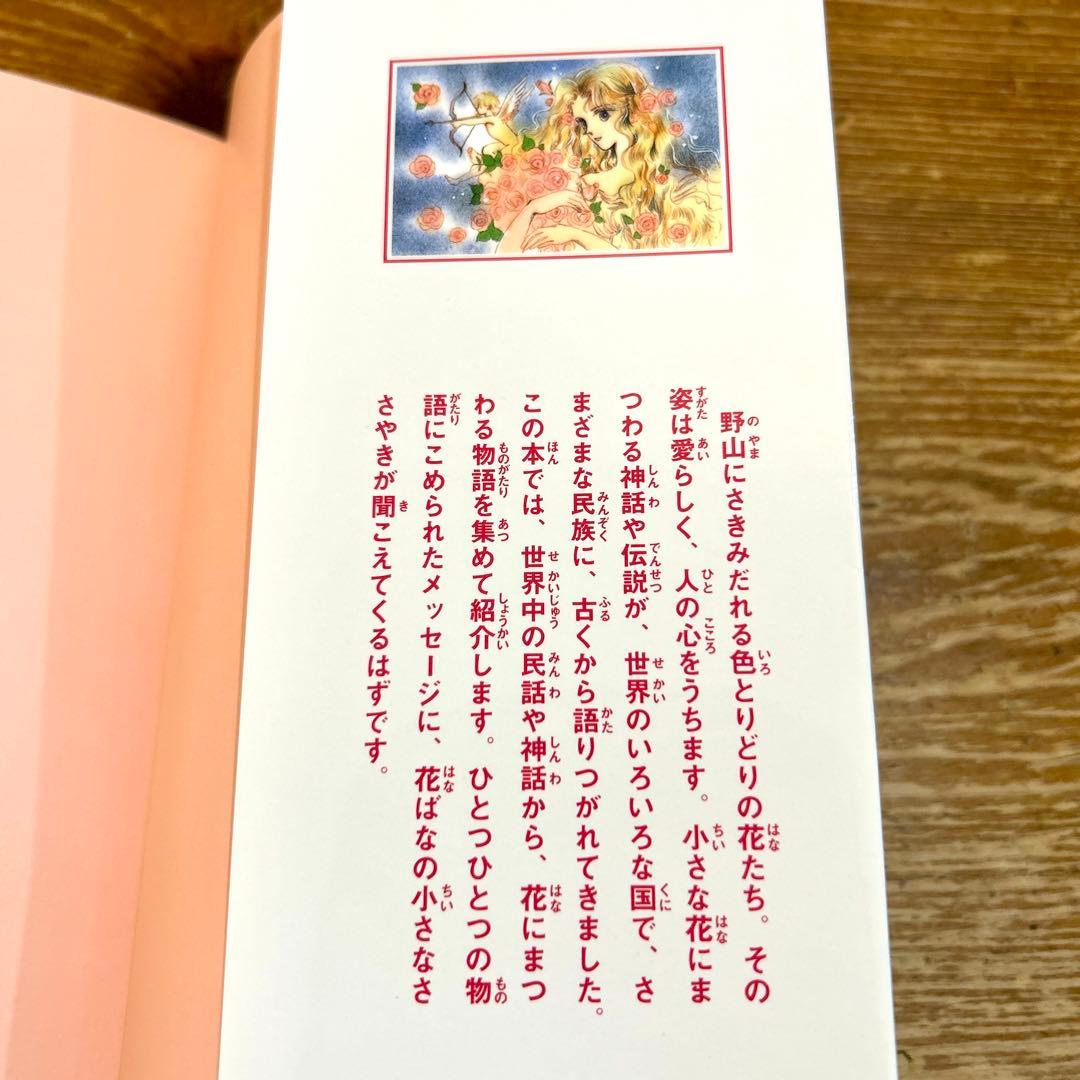 野山にさきみだれる色とりどりの花たち。その
姿は愛らしく、人の心をうちます。小さな花にま
つわる神話や伝説が、世界のいろいろな国で、さ
まざまな民族に、古くから語りつがれてきました。
この本では、世界中の民話や神話から、花にまつ
わる物語を集めて紹介します。ひとつひとつの物
語にこめられたメッセージに、花ばなの小さなさ
さやきが聞こえてくるはずです。